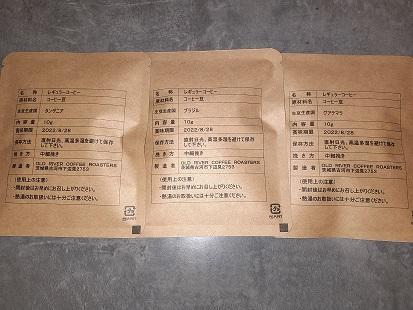 名　　称　レギュラーコーヒー
原材料名　コーヒー豆
生豆生産国　タンザニア
内 容 量　10g
賞味期限　2022/8/28
保存方法　直射日光、高温多湿を避けて保存
して下さい。
挽 き 方　中細挽き
製 造 者　OLD RIVER COFFEE ROASTERS
茨城県古河市下辺見2753
(使用上の注意)
・開封後はお早めにお召し上がりください。
・熱湯のお取扱いには十分ご注意ください。
名　　称　レギュラーコーヒー
原材料名　コーヒー豆
生豆生産国　ブラジル
内 容 量　10g
賞味期限　2022/8/28
保存方法　直射日光、高温多湿を避けて保存
して下さい。
挽 き 方　中細挽き
製 造 者　OLD RIVER COFFEE ROASTERS
茨城県古河市下辺見2753
(使用上の注意)
・開封後はお早めにお召し上がりください。
・熱湯のお取扱いには十分ご注意ください。
名　　称　レギュラーコーヒー
原材料名　コーヒー豆
生豆生産国　グアテマラ
内 容 量　10g
賞味期限　2022/8/28
保存方法　直射日光、高温多湿を避けて保存
して下さい。
挽 き 方　中細挽き
製 造 者　OLD RIVER COFFEE ROASTERS
茨城県古河市下辺見2753
(使用上の注意)
・開封後はお早めにお召し上がりください。
・熱湯のお取扱いには十分ご注意ください。